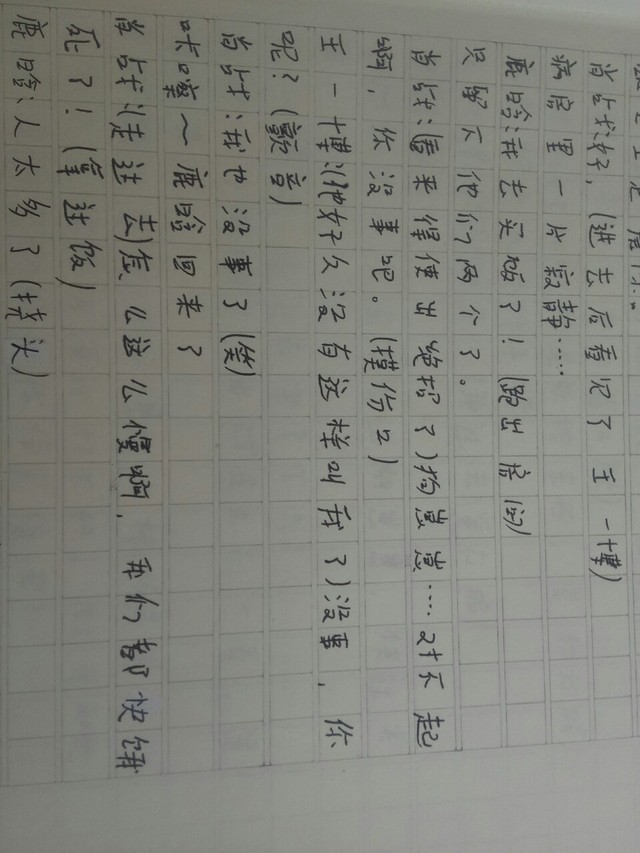 肖战:好，(进去后看见了王一博)
病房里一片寂静……
鹿晗:我去买饭了！(跑出房间)
只留下他们两个了。
肖战:(看来得使出绝招了)狗崽崽……对不起
啊，你没事吧。(摸伤口)
王一博:(他好久没有这样叫我了)没事，你
呢？(颤音)
肖战:我也没事了(笑)
咔嚓～鹿晗回来了
肖战:(走进去)怎么这么慢啊，我们都快饿
死了！(拿进饭)
鹿晗:人太多了(挠头)